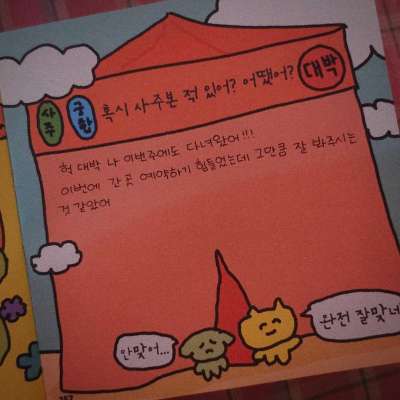 사주
궁합
혹시 사주본 적 있어? 어땠어?
대박
헉 대박 나 이번주에도 다녀왔어!!!
이번에 간 곳 예약하기 힘들었는데 그만큼 잘 봐주시는
것 같았어
안맞어...
완전 잘맞네